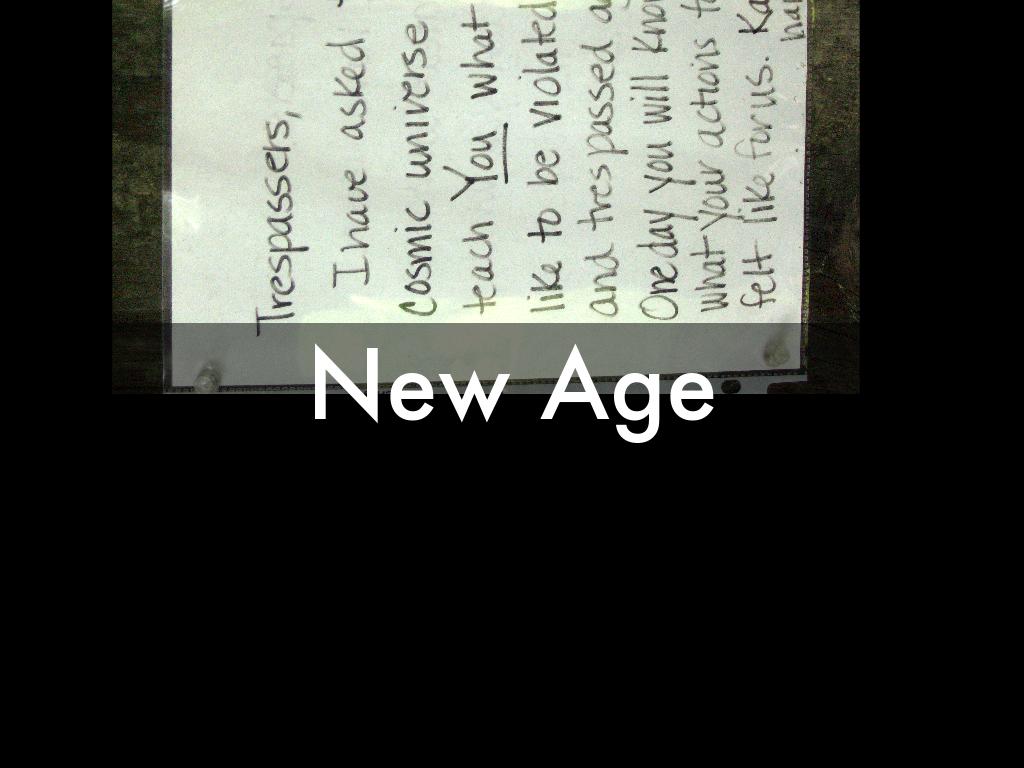 Trespassers,
I have asked
cosmic universe
teach You what
like to be violated
and trespassed
One day you will
what your actions
felt like for us.
New Age